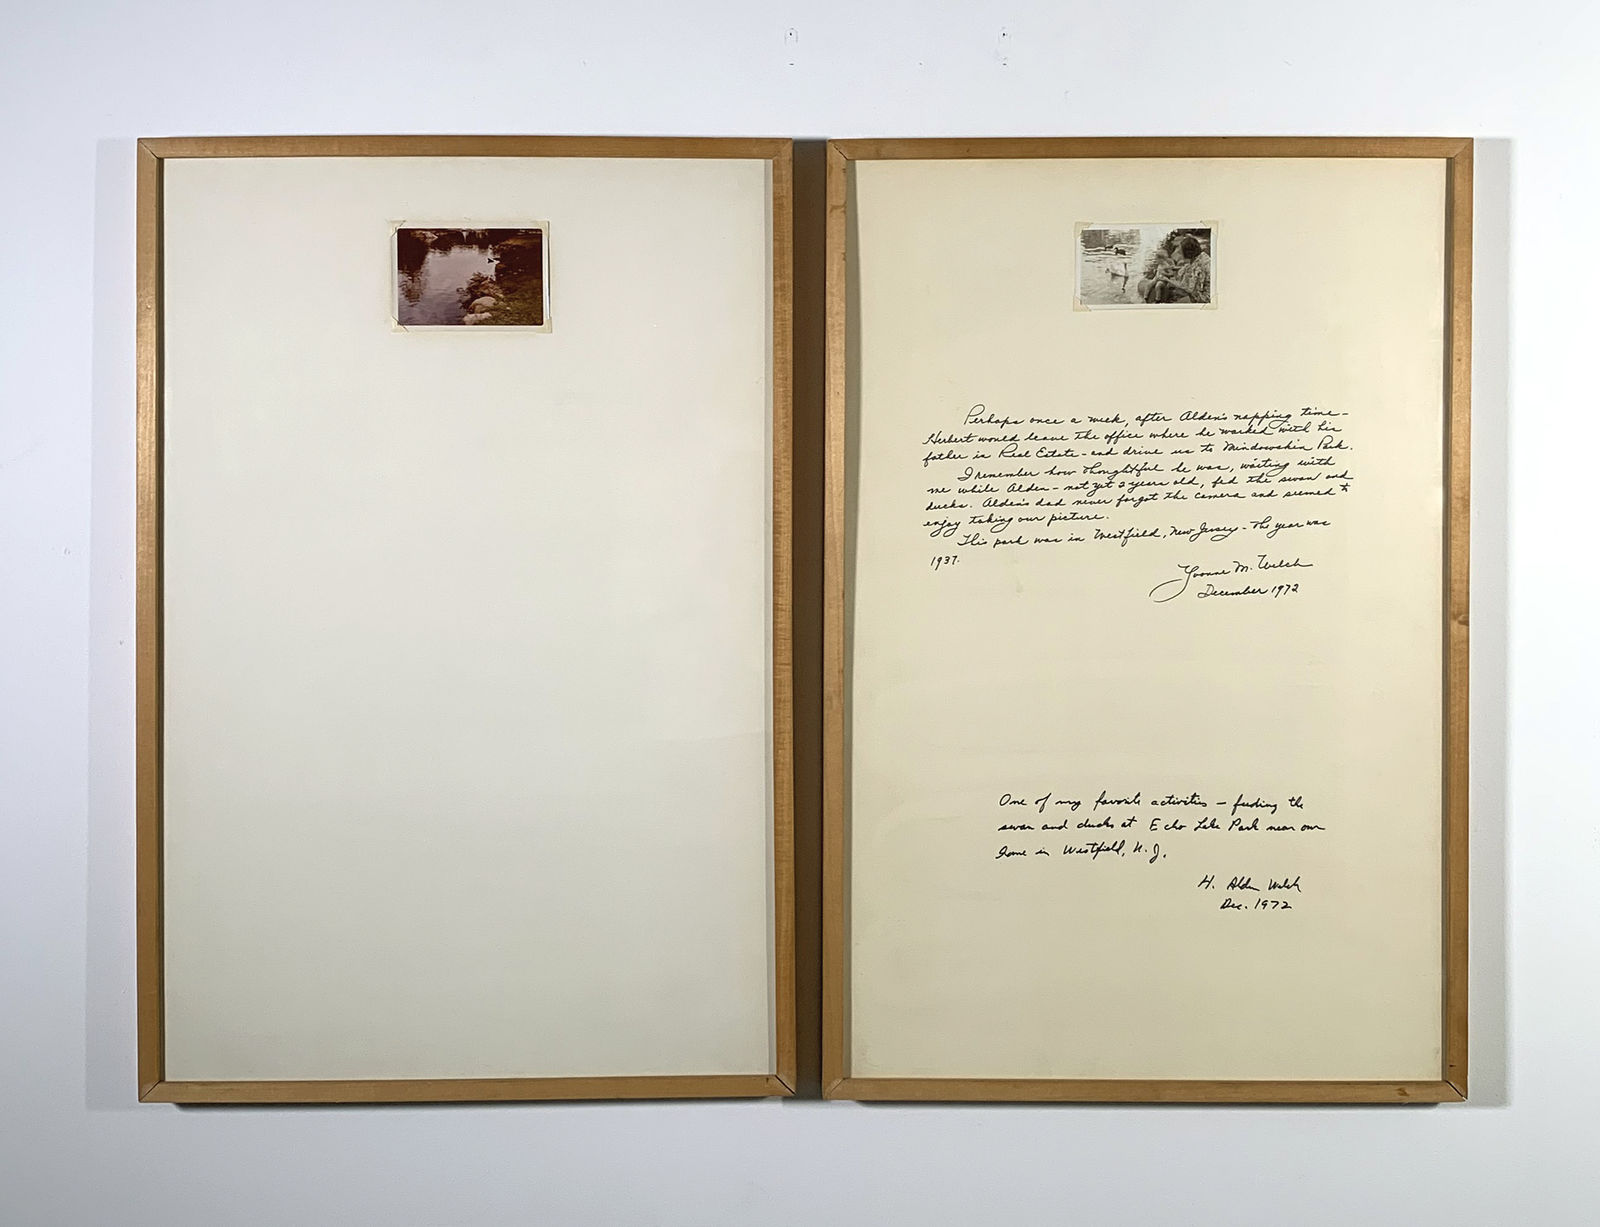 Perhaps once a week, after Alden's napping time -
Herbert would leave the office where he worked with his
father in Real Estate - and drive us to Mindowaskin Park.
I remember how thoughtful he was, waiting with
me while Alden - not yet 2 years old, fed the swan and
ducks. Alden's dad never forgot the camera and seemed to
enjoy taking our picture.
This park was in Westfield, New Jersey - The year was
1937.
Yvonne M. Welch
December 1972
One of my favorite activities - feeding the
swan and ducks at Echo Lake Park near our
home in Westfield, N.J.
H. Alden Welch
Dec. 1972